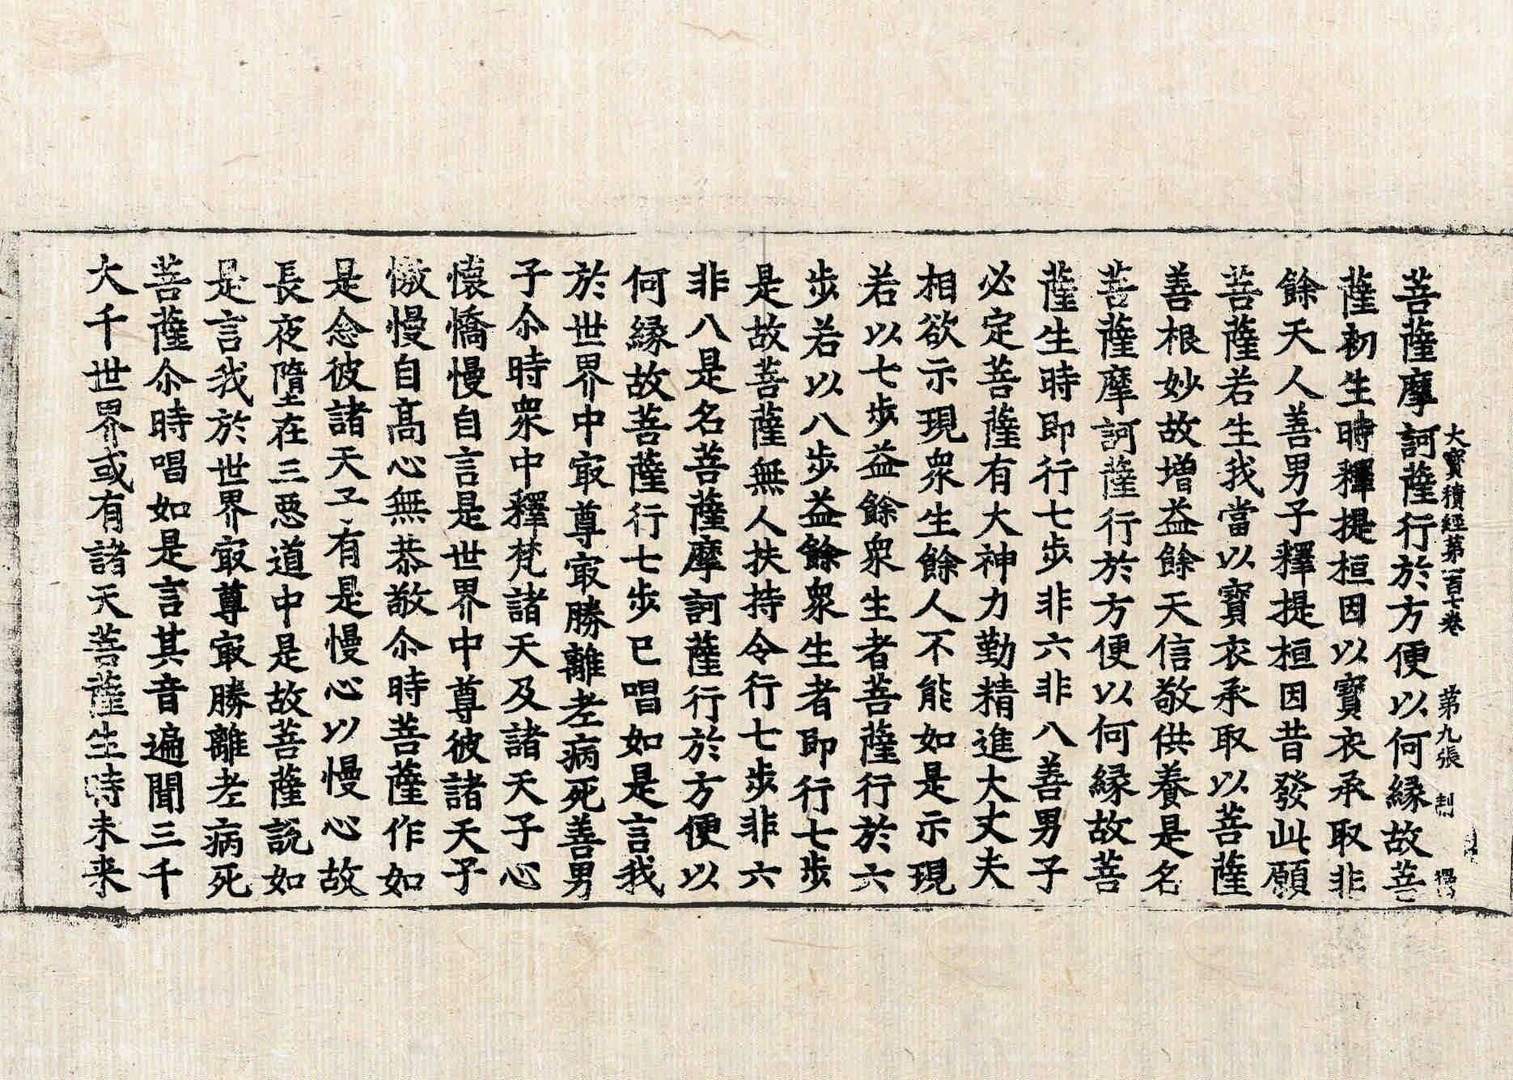 大寶積經第一百七卷 第九張 制
菩薩摩訶薩行於方便以何緣故菩
薩初生時釋提桓因以寶衣承取非
餘天人善男子釋提桓因昔發此願
菩薩若生我當以寶衣承取以菩薩
善根妙故增益餘天信敬供養是名
菩薩摩訶薩行於方便以何緣故菩
薩生時即行七步非六非八善男子
必定菩薩有大神力勤精進大丈夫
相欲示現衆生餘人不能如是示現
若以七步益餘衆生者菩薩行於六
步若以八步益餘衆生者即行七步
是故菩薩無人扶持令行七步非六
非八是名菩薩摩訶薩行於方便以
何緣故菩薩行七步已唱如是言我
於世界中㝡尊㝡勝離老病死善男
子尒時衆中釋梵諸天及諸天子心
懷憍慢自言是世界中尊彼諸天子
憿慢自高心無恭敬尒時菩薩作如
是念彼諸天子有是慢心以慢心故
長夜墮在三惡道中是故菩薩說如
是言我於世界㝡尊㝡勝離老病死
菩薩尒時唱如是言其音遍聞三千
大千世界或有諸天菩薩生時未来